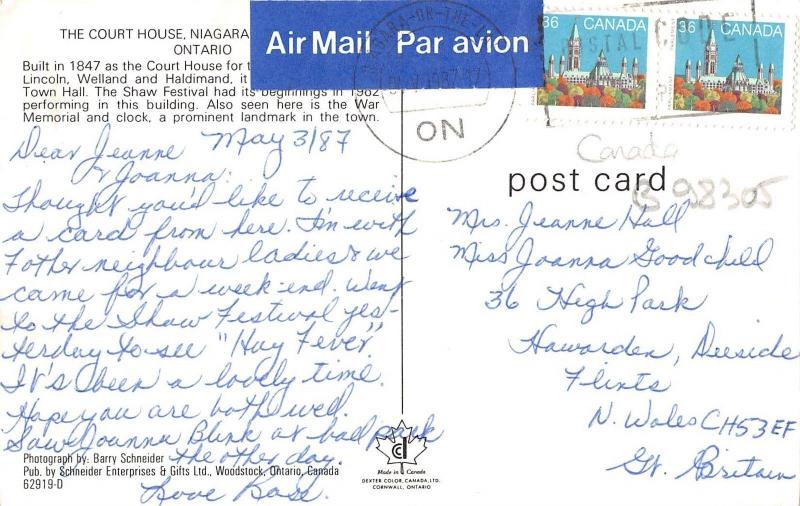 THE COURT HOUSE, NIAGARA
ONTARIO
Built in 1847 as the Court House for t
Lincoln, Welland and Haldimand, it
Town Hall. The Shaw Festival had its beginnings in 1962
performing in this building. Also seen here is the War
Memorial and clock, a prominent landmark in the town.
Air Mail Par avion
NIAGARA-ON-THE-
1987
ON
POSTAL CODE
36 CANADA
36 CANADA
Dear Jeanne May 3/87
& Joanna:
Thought you'd like to receive
a card from here. I'm with
7 other neighbour ladies & we
came for a week-end. Went
to the Shaw Festival yes-
terday to see "Hay Fever".
It's been a lovely time.
Hope you are both well.
Saw Joanna at ball park
the other day.
Love
Photograph by: Barry Schneider
Pub. by Schneider Enterprises & Gifts Ltd., Woodstock, Ontario, Canada
62919-D
Made in Canada
DEXTER COLOR, CANADA, LTD.
CORNWALL, ONTARIO
Canada
post card
98305
Mrs. Jeanne Hall
Miss Joanna Goodchild
36 High Park
Hawarden, Deeside
Flints
N. Wales CH53EF
Gt. Britain